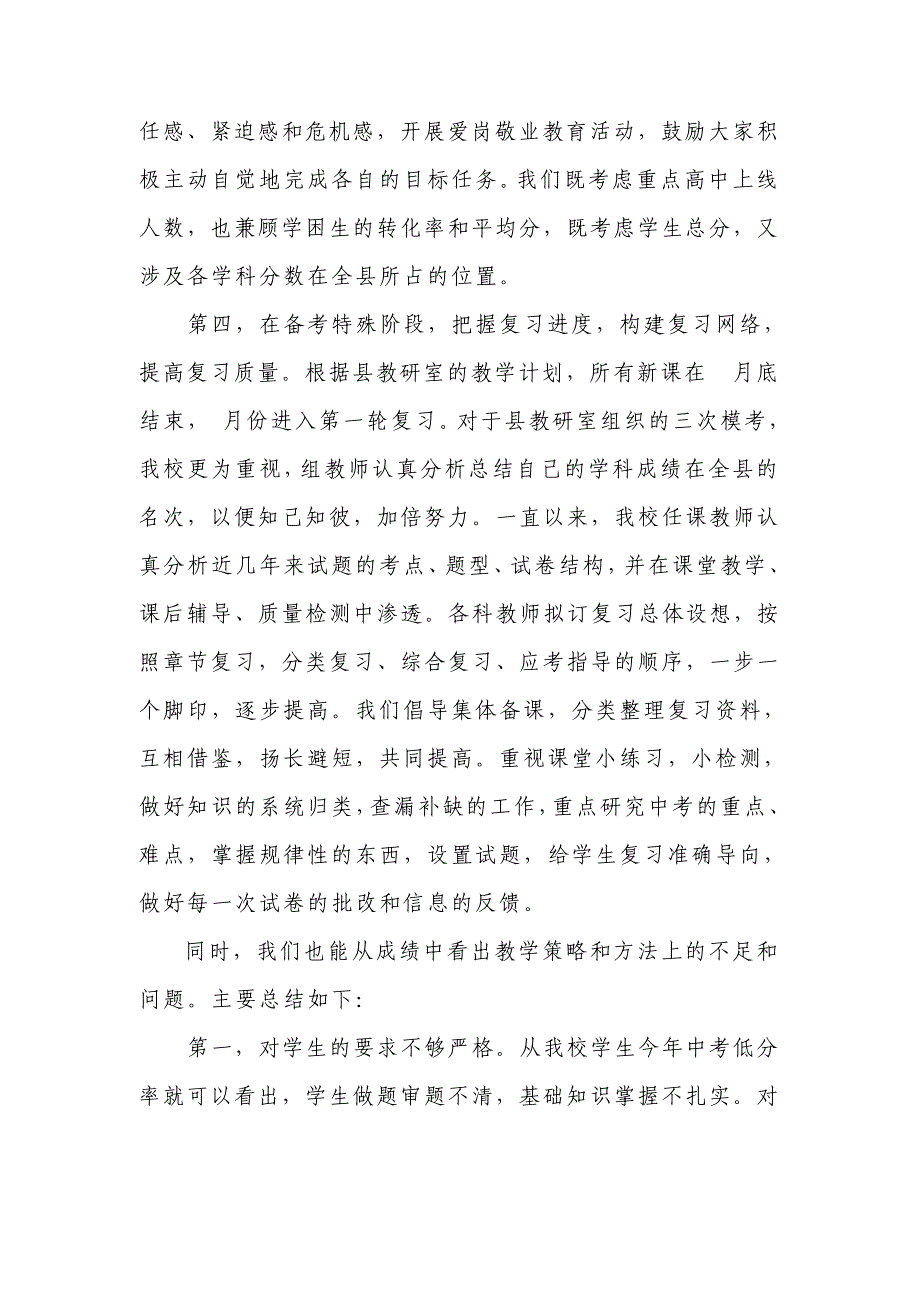 任感、紧迫感和危机感，开展爱岗敬业教育活动，鼓励大家积
极主动自觉地完成各自的目标任务。我们既考虑重点高中上线
人数，也兼顾学困生的转化率和平均分，既考虑学生总分，又
涉及各学科分数在全县所占的位置。
第四，在备考特殊阶段，把握复习进度，构建复习网络，
提高复习质量。根据县教研室的教学计划，所有新课在　月底
结束，　月份进入第一轮复习。对于县教研室组织的三次模考，
我校更为重视，组教师认真分析总结自己的学科成绩在全县的
名次，以便知己知彼，加倍努力。一直以来，我校任课教师认
真分析近几年来试题的考点、题型、试卷结构，并在课堂教学、
课后辅导、质量检测中渗透。各科教师拟订复习总体设想，按
照章节复习，分类复习、综合复习、应考指导的顺序，一步一
个脚印，逐步提高。我们倡导集体备课，分类整理复习资料，
互相借鉴，扬长避短，共同提高。重视课堂小练习，小检测，
做好知识的系统归类，查漏补缺的工作，重点研究中考的重点、
难点，掌握规律性的东西，设置试题，给学生复习准确导向，
做好每一次试卷的批改和信息的反馈。
同时，我们也能从成绩中看出教学策略和方法上的不足和
问题。主要总结如下：
第一，对学生的要求不够严格。从我校学生今年中考低分
率就可以看出，学生做题审题不清，基础知识掌握不扎实。对